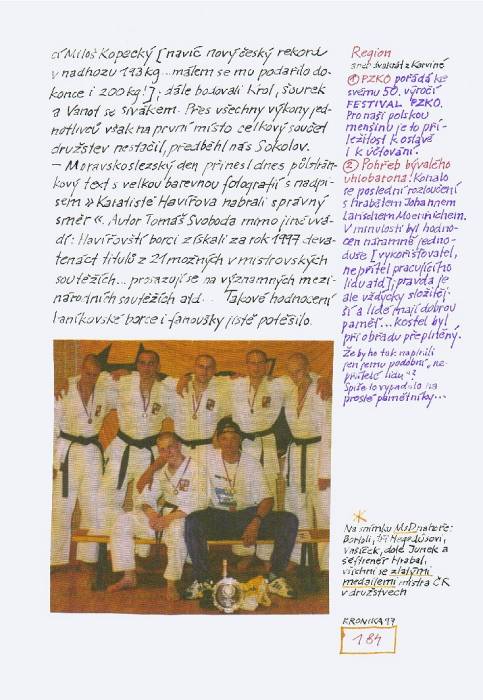 cí Miloš Kopecký [navíc nový český rekord
v nadhozu 193 kg... málem se mu podařilo do-
konce i 200 kg!]; dále bodovali Krol, Šourek
a Vanot se Sivákem. Přes všechny výkony jed-
notlivců však na první místo celkový součet
družstev nestačil, předběhl nás Sokolov.
– Moravskoslezský den přinesl dnes půlstrán-
kový text s velkou barevnou fotografií s nadpi-
sem » Karatisté Havířova nabrali správný
směr «. Autor Tomáš Svoboda mimo jiné uvá-
dí: Havířovští borci získali za rok 1997 deva-
tenáct titulů z 21 možných v mistrovských
soutěžích... prosazují se na významných mezi-
národních soutěžích atd... Takové hodnocení
baníkovské borce i fanoušky jistě potěšilo.
Region
aneb dvakrát z Karviné
1 PZKO pořádá ke
svému 50. výročí
FESTIVAL PZKO.
Pro naši polskou
menšinu je to pří-
ležitost k oslavě
i k účtování.
2 Pohřeb bývalého
uhlobarona: Konalo
se poslední rozloučení
s hrabětem Johannem
Larischem Moennichem.
V minulosti byl hodno-
cen náramně jedno-
duše [vykořisťovatel,
nepřítel pracujícího
lidu atd]; pravda je
ale vždycky složitěj-
ší a lidé mají dobrou
paměť... kostel byl
při obřadu přeplněný.
Že by ho tak naplnili
jen jemu podobní „ne-
přátelé lidu"?
Spíše to vypadalo na
prosté pamětníky...
Na snímku MsD nahoře:
Bartoli, tři Hegedüsovi,
Vašíček, dole Jurek a
šéftrenér Hrabal,
všichni se zlatými
medailemi mistra ČR
v družstvech
KRONIKA 97
184